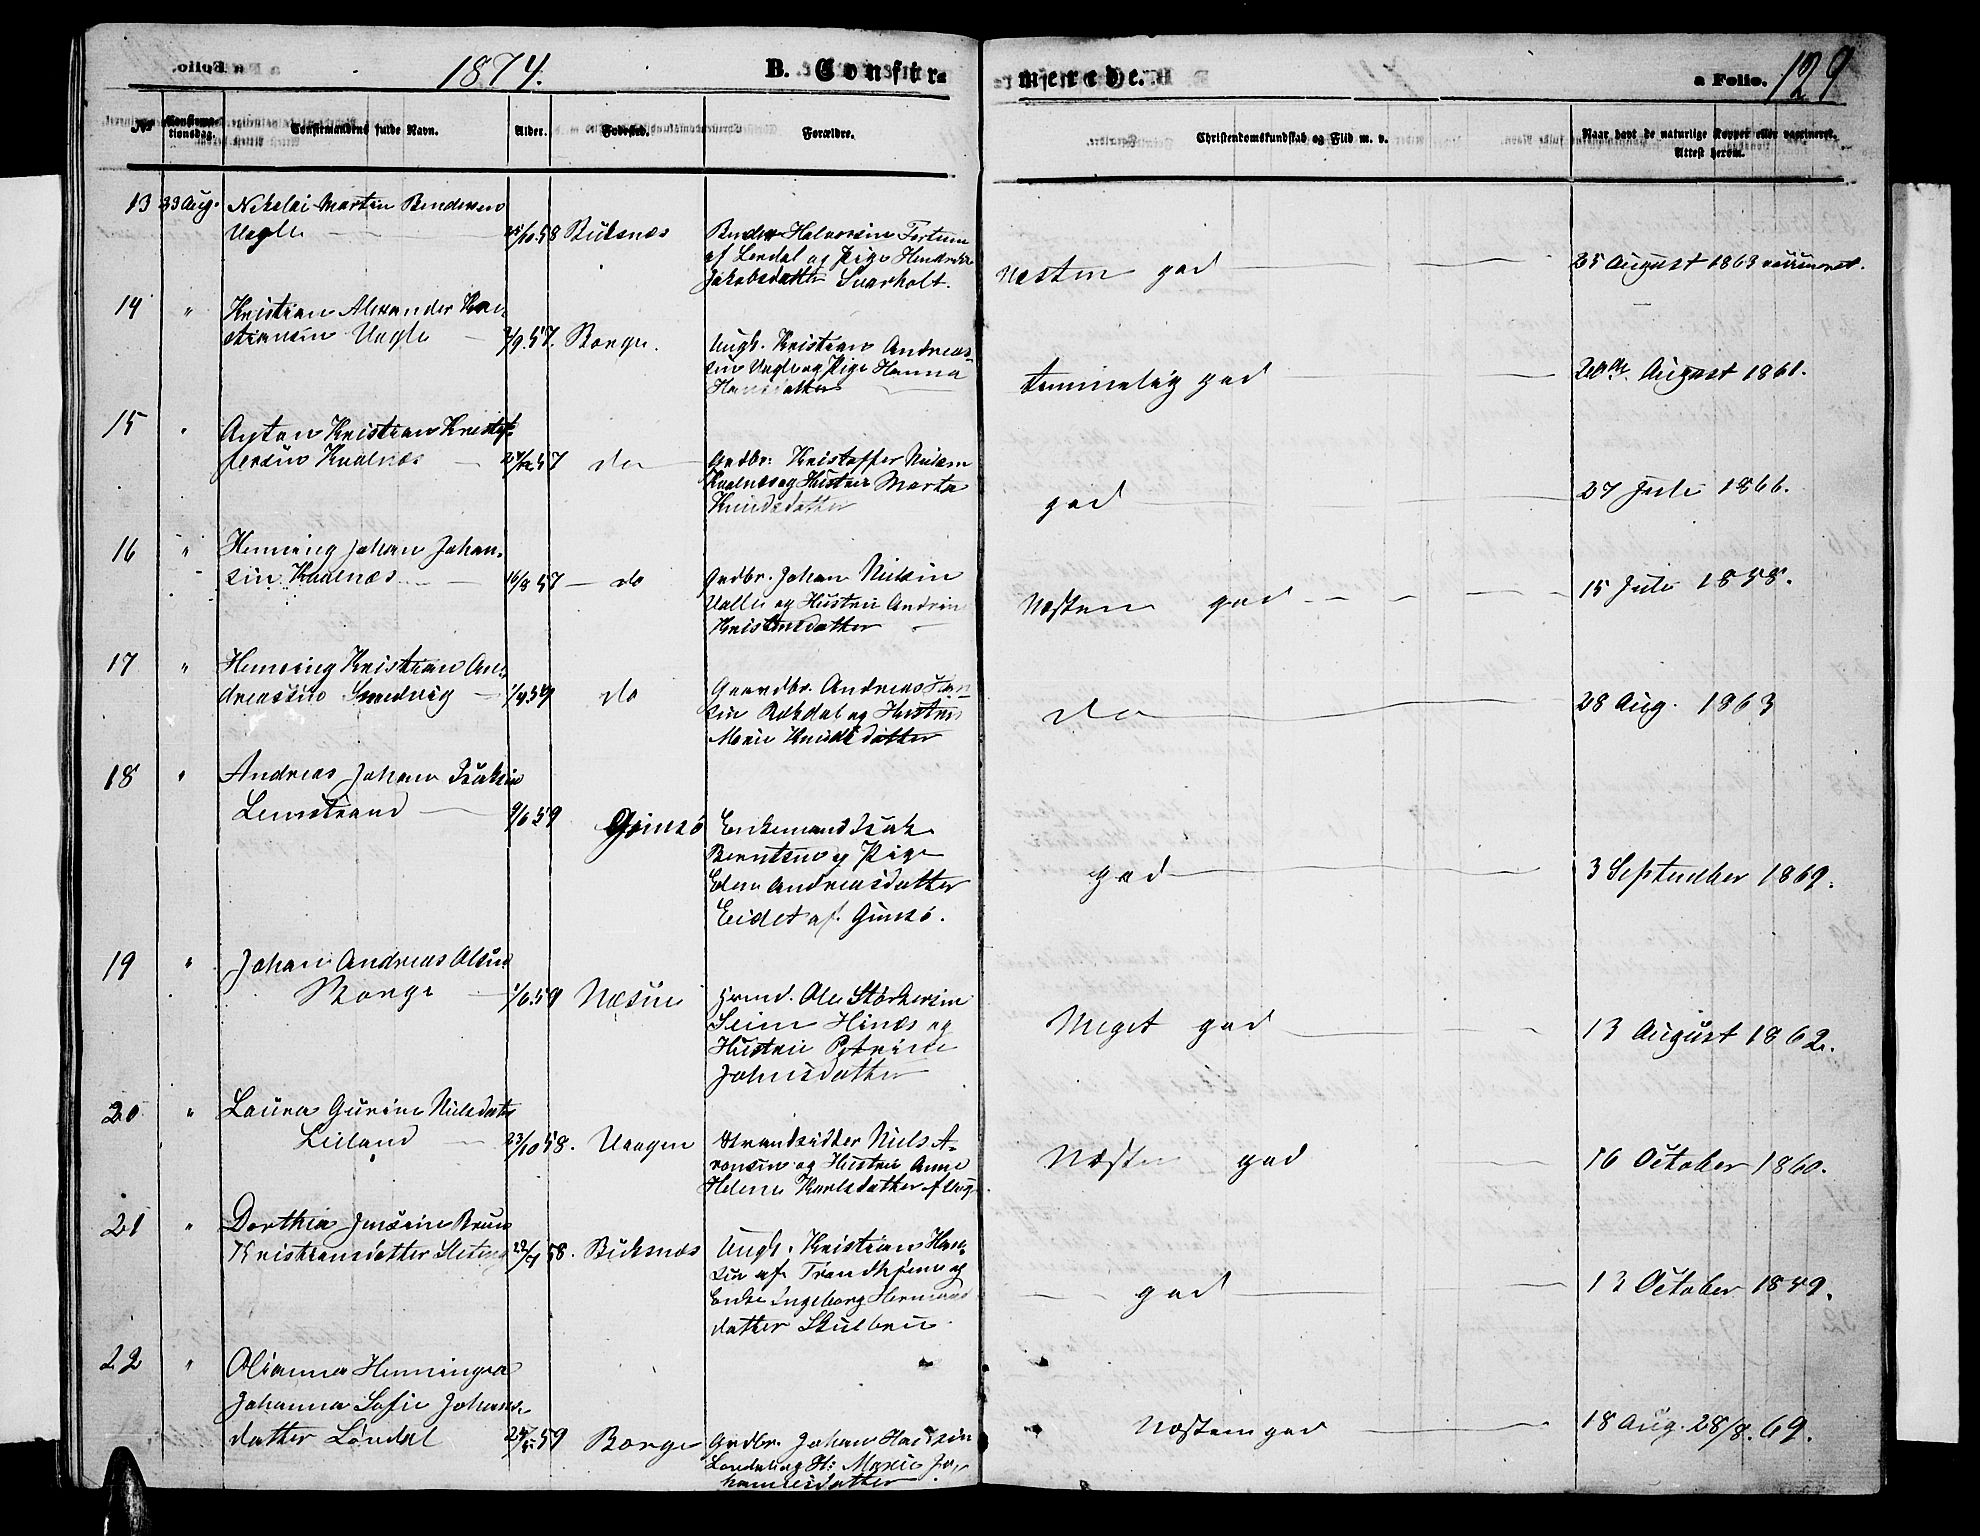 1874. B. Confir=
merede. a Folio. 129
Nr Confirma-tionsdag. Confirmandens fulde Navn. Alder. Fødested. Forældre. Christendomskundskab og Flid m. v. Naar havt de naturlige Kopper eller vaccineret. Attest herom.
13 23 Aug. Nikolai Martin Bendiksen
Uagle /10 58 Buksnæs
Halvorsen
af Lerdal og Pige
Jakobsdatter Svarholt.
Næsten god 25 August 1863 vaccineret.
14 " Kristian Alexander Kri-
stiansen Uagle /9 57. Borge.
Ungk. Kristian Andreas-
sen Uagle og Pige Hanna
Hansdatter
temmelig god 20de August 1861.
15 " Anton Kristian Kristof-
fersen Kvalnæs 27/12 57 do
Grdbr. Kristoffer Nielsen
Kvalnæs og Hustru Marta
Knudsdatter
god 27 Juli 1866.
16 " Henning Johan Johan-
sen Kvalnæs 16/8 57 do
Grdbr. Johan Nielsen
Valle og Hustru Andrin
Kristensdatter
Næsten god 15 Juli 1858.
17 " Henning Kristian An-
dreassen Smedvig 1/4 59 do
Gaardbr. Andreas Han-
sen Rekdal og Hustru
Marie Knudsdatter
do 28 Aug. 1863
18 " Andreas Johan Isaksen
Limstrand 9/6 59 Gimsø
Enkemand Isak
Berntsen og Pige
Elen Andreasdatter
Eidet af Gimsø.
god 3 September 1869.
19 " Johan Andreas Olsen
Borge 1/6 59 Næsne
Ole Størkersen
Seim Hinæs og
Hustru Petrine
Johnsdatter
Meget god 13 August 1862.
20 " Laura Gurine Nielsdatr
Leiland 23/10 58. Vaagen
Strandsidder Niels A-
ronsen og Hustru Anne
Helene Karlsdatter af
Næsten god 16 October 1860.
21 " Dorthea Jensine Brun
Kristiansdatter 58. Buksnæs
Ungk. Kristian Han-
sen af Trondhjem og
Enke Ingeborg
datter Skulbru
god 13 October 1859.
22 " Olianna Henningea
Johanna Sofie Johans-
datter Løvdal 59 Borge
Grdbr. Johan Hansen
Løvdal og H: Marie Jo-
hannesdatter
Næsten god 18 Aug. 28/8. 69.